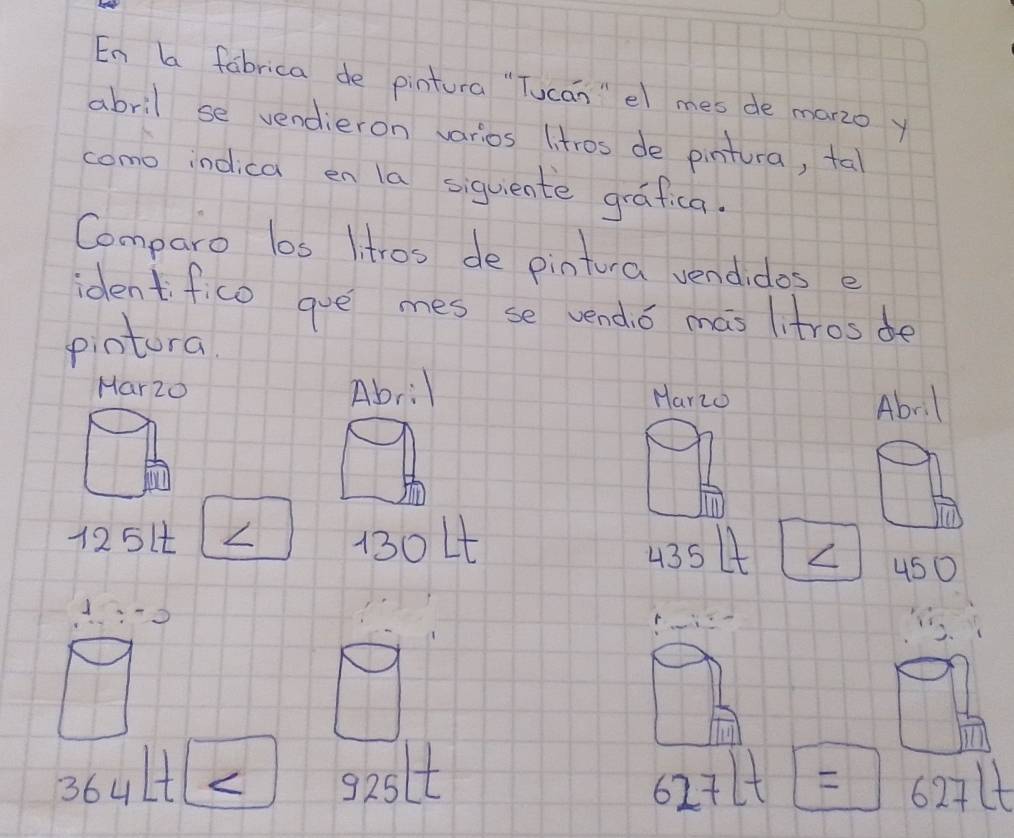 En la fábrica de pintura "Tucán" el mes de marzo y
abril se vendieron varios litros de pintura, tal
como indica en la siguiente gráfica.
Comparo los litros de pintura vendidos e
identifico qué mes se vendió más litros de
pintura.
Marzo Abril Marzo Abril
125 lt < 130 Lt 435 Lt < 450
364 Lt < 925 Lt 627 Lt = 627 Lt